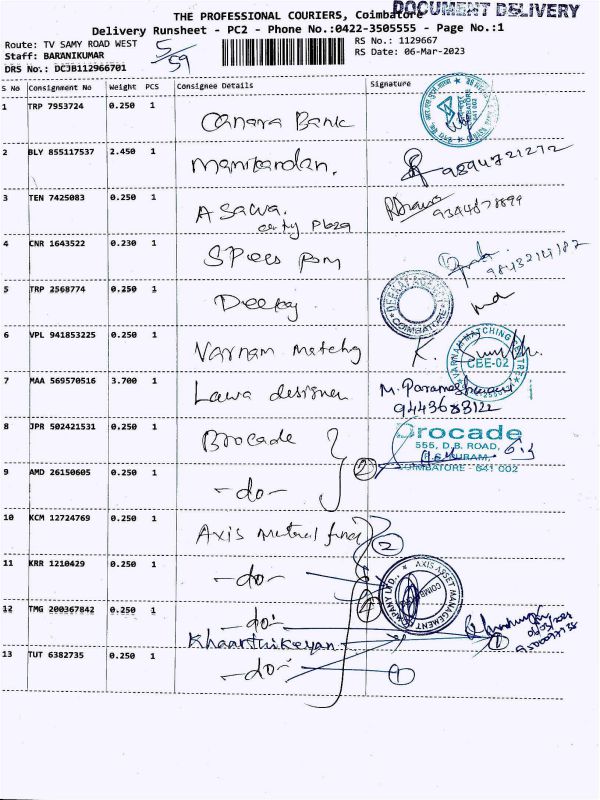 DOCUMENT DELIVERY
THE PROFESSIONAL COURIERS, Coimbatore
Delivery Runsheet - PC2 - Phone No.:0422-3505555 - Page No.:1
Route: TV SAMY ROAD WEST
RS No.: 1129667
Staff: BARANIKUMAR
RS Date: 06-Mar-2023
DRS No.: DCJB112966701
5/59
S No Consignment No Weight PCS Consignee Details Signature
1 TRP 7953724 0.250 1 Canara Bank
2 BLY 855117537 2.450 1 Manikandan. 9894721272
3 TEN 7425083 0.250 1 A Sarva. 9344878899
city Plaza
4 CNR 1643522 0.230 1 9843214182
5 TRP 2568774 0.250 1 Deekay
COIMBATORE
6 VPL 941853225 0.250 1 Varnam Matchg K.
VARNAM MATCHING CENTRE
CBE-02
7 MAA 569570516 3.700 1 Lawa designer M. Parameshwari
9443683122
8 JPR 502421531 0.250 1 Brocade
Brocade
555, D.B. ROAD,
R.S. PURAM,
COIMBATORE - 641 002
9 AMD 26150605 0.250 1 -do- 2
10 KCM 12724769 0.250 1 Axis mutual fund 2
11 KRR 1210429 0.250 1 -do-
AXIS ASSET MANAGEMENT COMPANY LTD.,
12 TMG 200367842 0.250 1 -do- 4
Khaarthikeyan 1
13 TUT 6382735 0.250 1 -do- 1